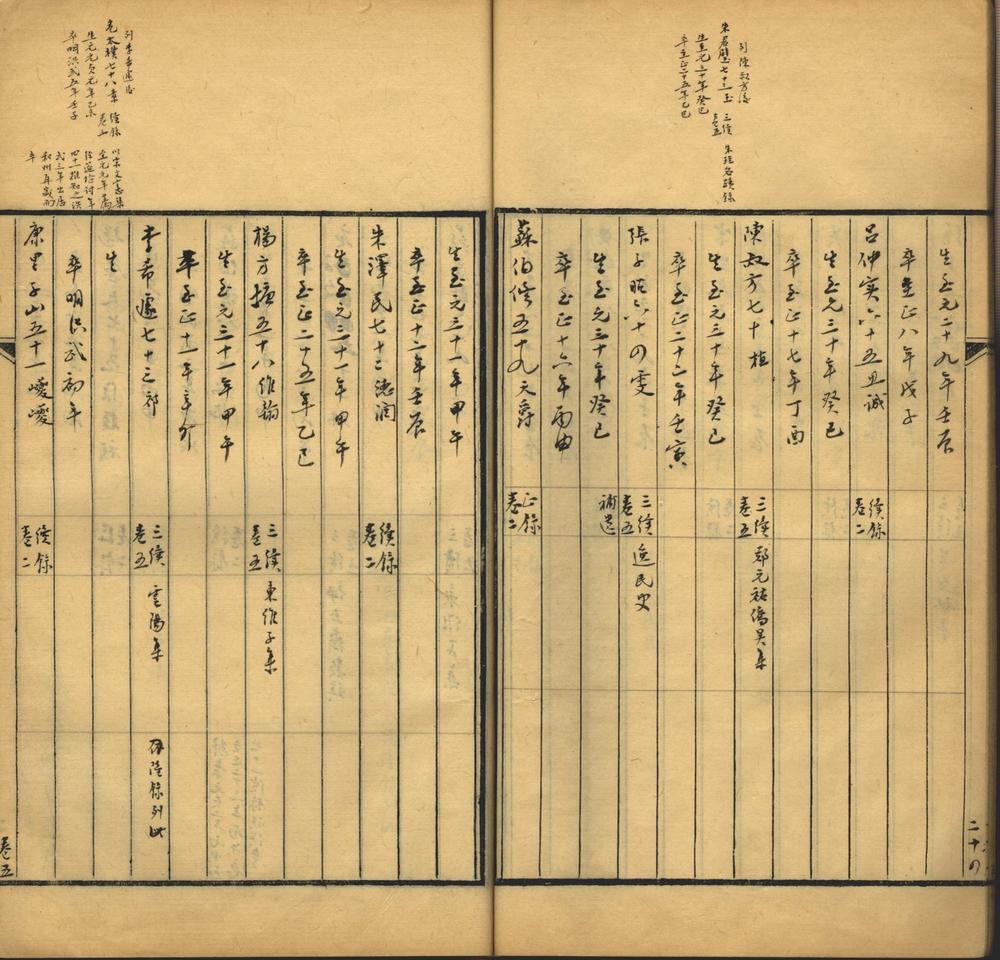 列陳叔方後
朱君璧七十三玉 三續卷五 朱珪名蹟錄
生至元三十年癸巳
卒至正二十五年乙巳
生至元二十九年壬辰
卒至正八年戊子
呂仲實六十五思誠 續錄卷二
生至元三十年癸巳
卒至正十七年丁酉
陳叔方七十植 三續卷五 鄭元祐僑吳集
生至元三十年癸巳
卒至正二十二年壬寅
張子昭六十四雯 三續卷五補遺 逸民史
生至元三十年癸巳
卒至正十六年丙申
蘇伯修五十九天爵 正錄卷二
二十四
生至元三十一年甲午
卒至正十二年壬辰
朱澤民七十二德潤 續錄卷二
生至元三十一年甲午
卒至正二十五年乙巳
楊方搪五十八作翰 三續卷五 東作子集
生至元三十一年甲午
卒至正十一年辛卯
李希蘧七十三祁 三續卷五 雲陽集 陸錄列此
生
卒明洪武初年
康里子山五十一巙巙 續錄卷二
列李希蘧後
危太樸七十八素 續錄卷二
生元元貞元年乙未
卒明洪武五年壬子
以宋文憲集
至元元年
四十一推知之洪
武三年出居
和州再歲而
卒
卷五